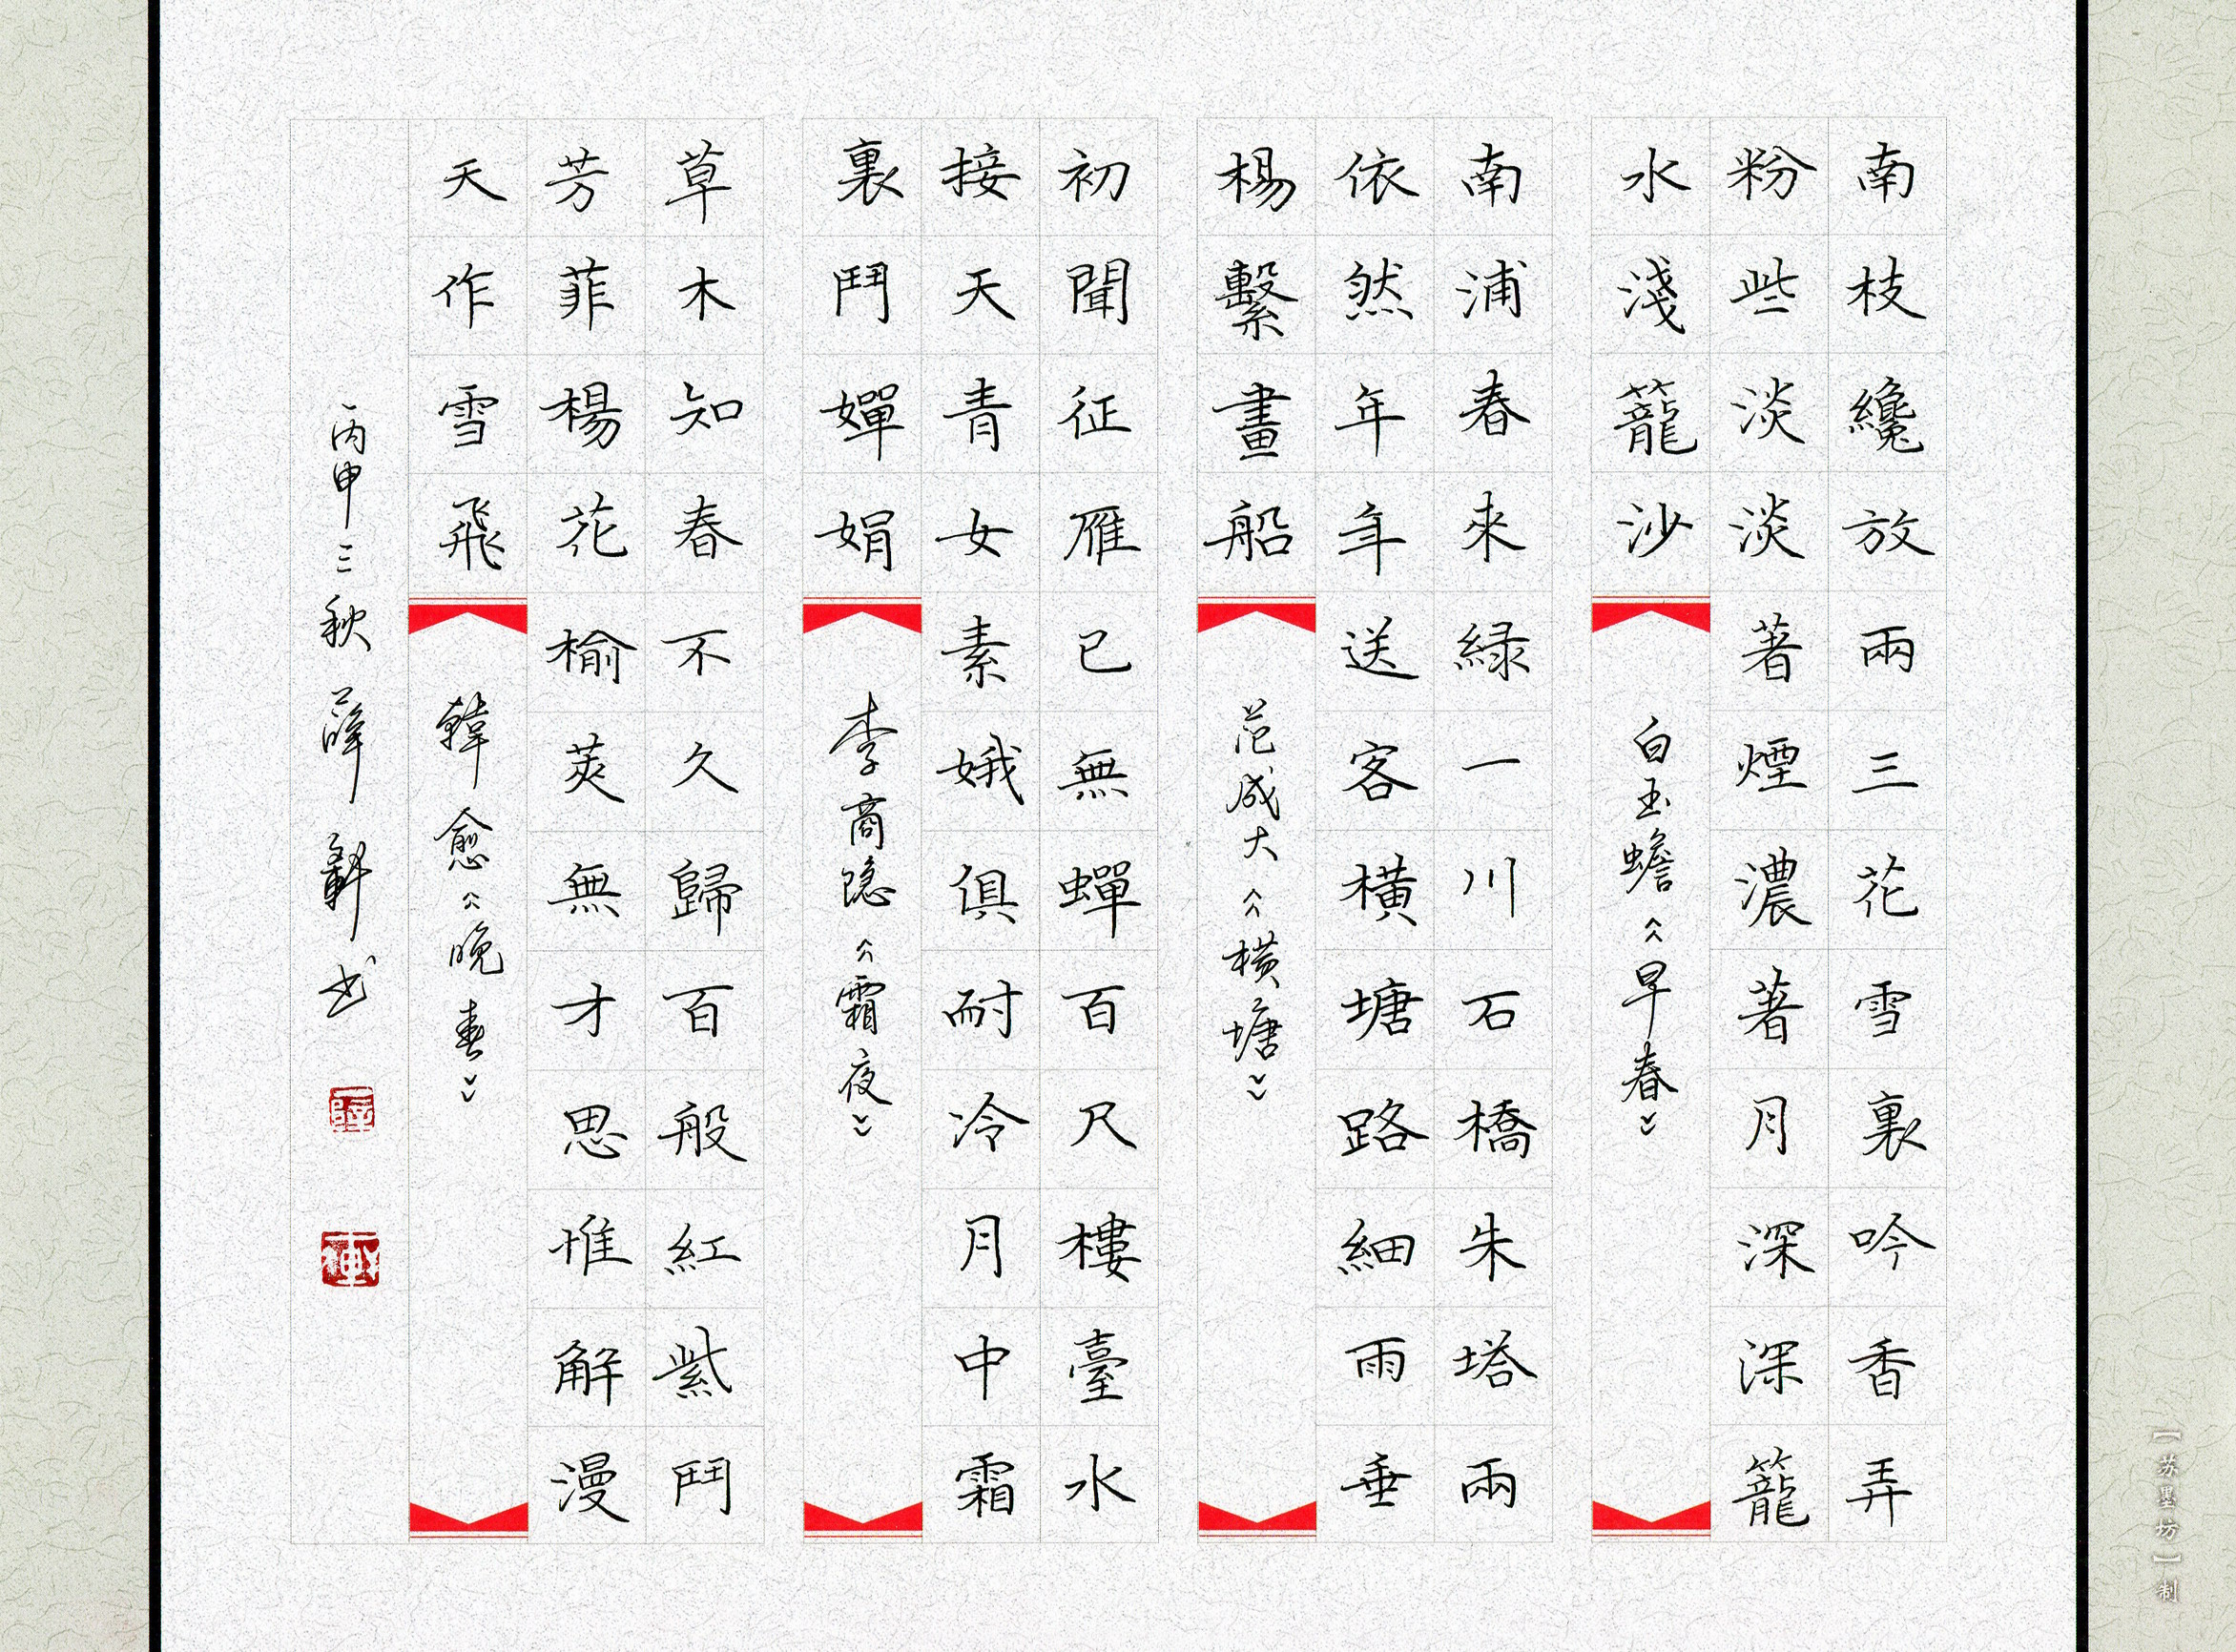 南枝纔放兩三花雪裏吟香弄
粉些淡淡著煙濃著月深深籠
水淺籠沙
白玉蟾《早春》
南浦春來緑一川石橋朱塔兩
依然年年送客橫塘路細雨垂
楊繫畫船
范成大《横塘》
初聞征雁已無蟬百尺樓臺水
接天青女素娥俱耐冷月中霜
裏鬥嬋娟
李商隐《霜夜》
草木知春不久歸百般紅紫鬥
芳菲楊花榆莢無才思惟解漫
天作雪飛
韓愈《晚春》
丙申三秋薛軒书
【苏墨坊】制